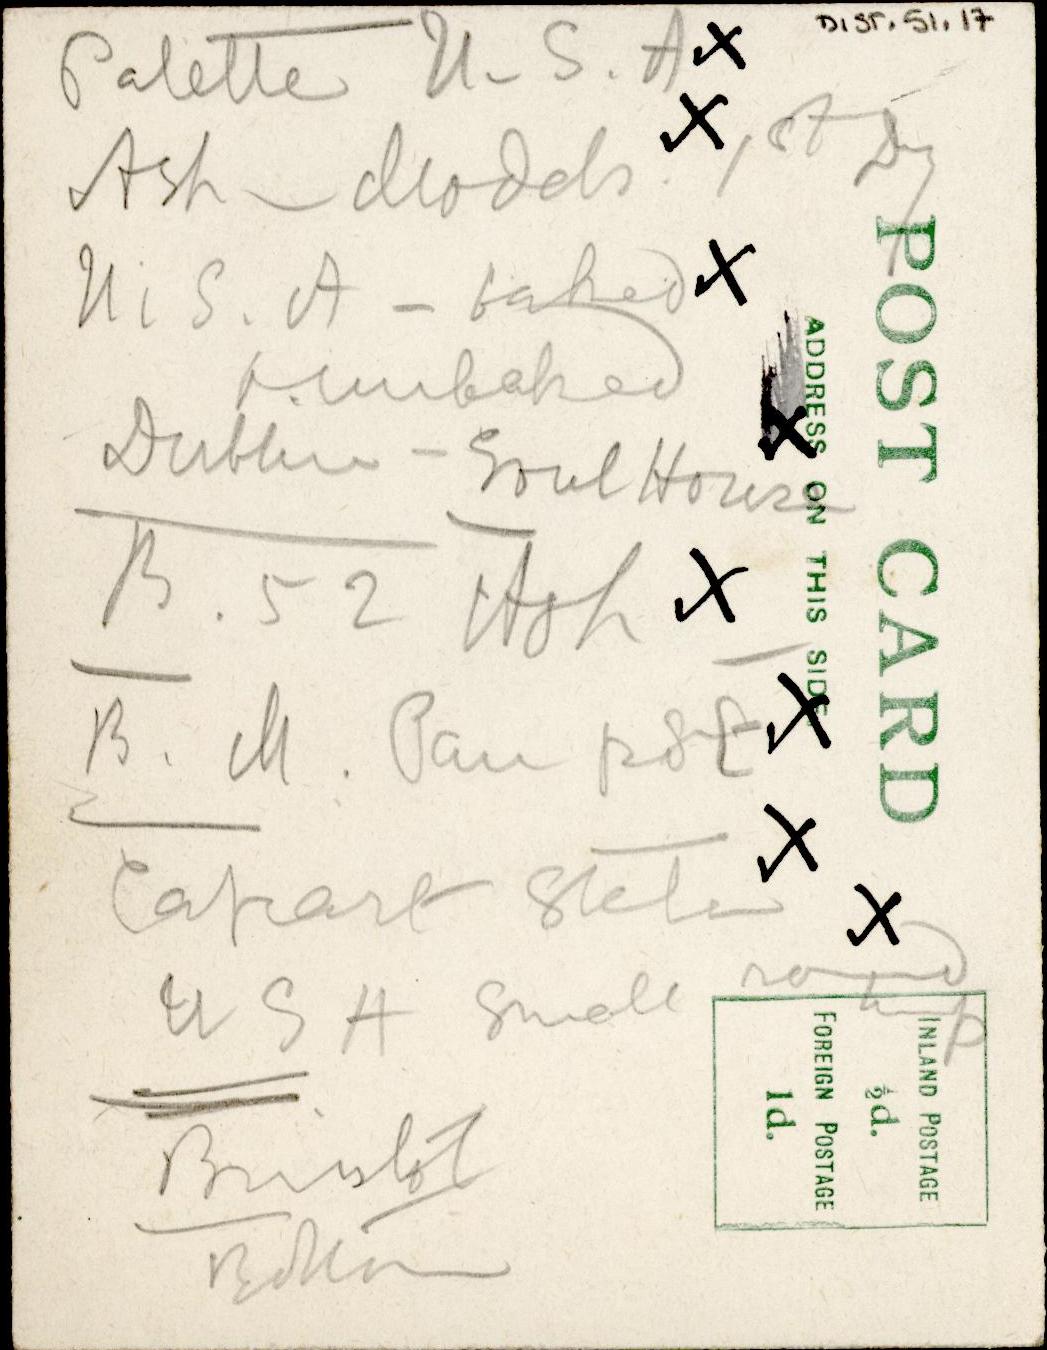 DIST. 51. 17
Palette U. S. A X
Ash - Models. X 1st Dy
U. S. A - baked X
+ unbaked
Dublin - Soul House X
B. 52 Ash X
B. M. Pan pot X
Capart Stele X
U S A Small round X
Bristol
Bolton
POST CARD
ADDRESS ON THIS SIDE
INLAND POSTAGE
½d.
FOREIGN POSTAGE
1d.